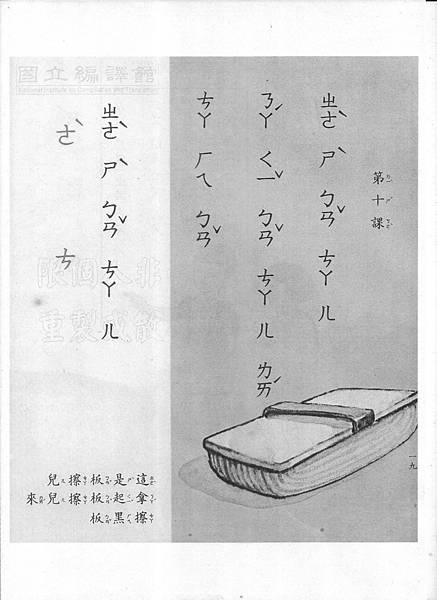 第十課
ㄓㄜˋ ㄕˋ ㄅㄢˇ ㄘㄚ ㄦ
ㄋㄚˊ ㄑㄧˇ ㄅㄢˇ ㄘㄚ ㄦ ㄌㄞˊ
ㄘㄚ ㄏㄟ ㄅㄢˇ
一九
國立編譯館
National Institute for Compilation and Translation
ㄓㄜˋ ㄕˋ ㄅㄢˇ ㄘㄚ ㄦ
ㄜˋ ㄘ
限個人非
重製或散
這是板擦兒
拿起板擦兒來
擦黑板